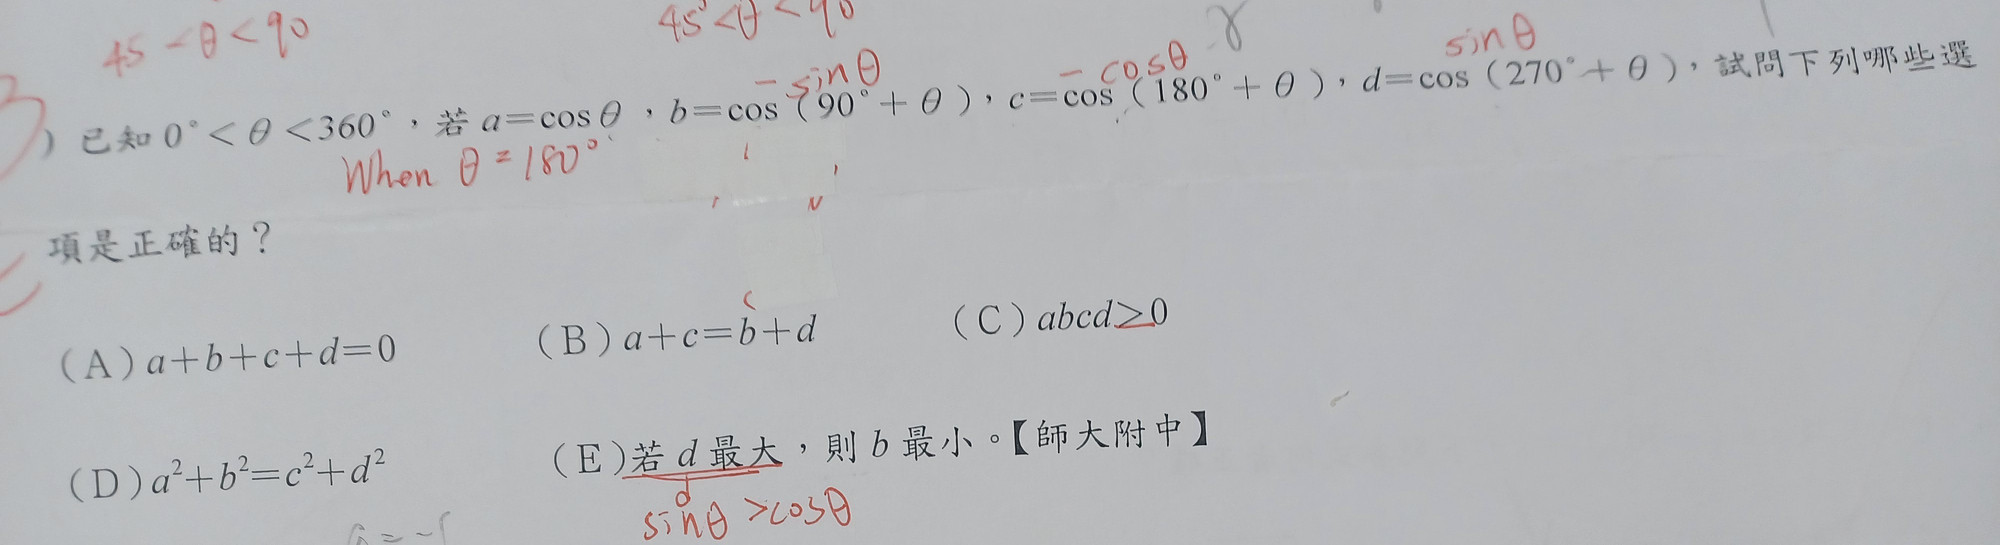 45 < θ < 90
45° < θ < 90
γ
- sinθ
- cosθ
sinθ
) 已知 0° < θ < 360°，若 a=cosθ，b=cos（90°+θ），c=cos（180°+θ），d=cos（270°+θ），試問下列哪些選
When θ = 180°
項是正確的？
c
(A) a+b+c+d=0 (B) a+c=b+d (C) abcd≥0
(D) a²+b²=c²+d² (E) 若 d 最大，則 b 最小。【師大附中】
d
sinθ > cosθ